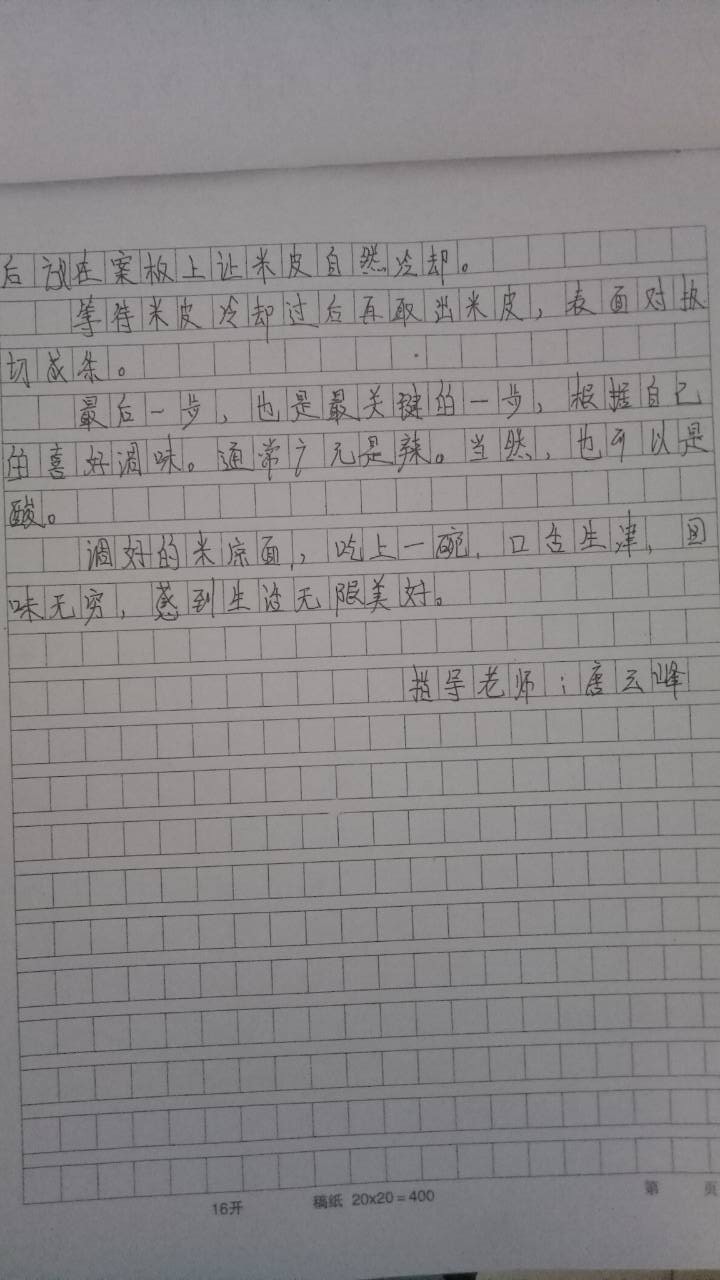 后放在案板上让米皮自然冷却。
等待米皮冷却过后再取出米皮，表面对扳
切成条。
最后一步，也是最关键的一步，根据自己
的喜好调味。通常广元是辣。当然，也可以是
酸。
调好的米凉面，吃上一碗，口舌生津，回
味无穷，感到生活无限美好。
指导老师：唐云峰
16开 稿纸 20x20=400 第 页